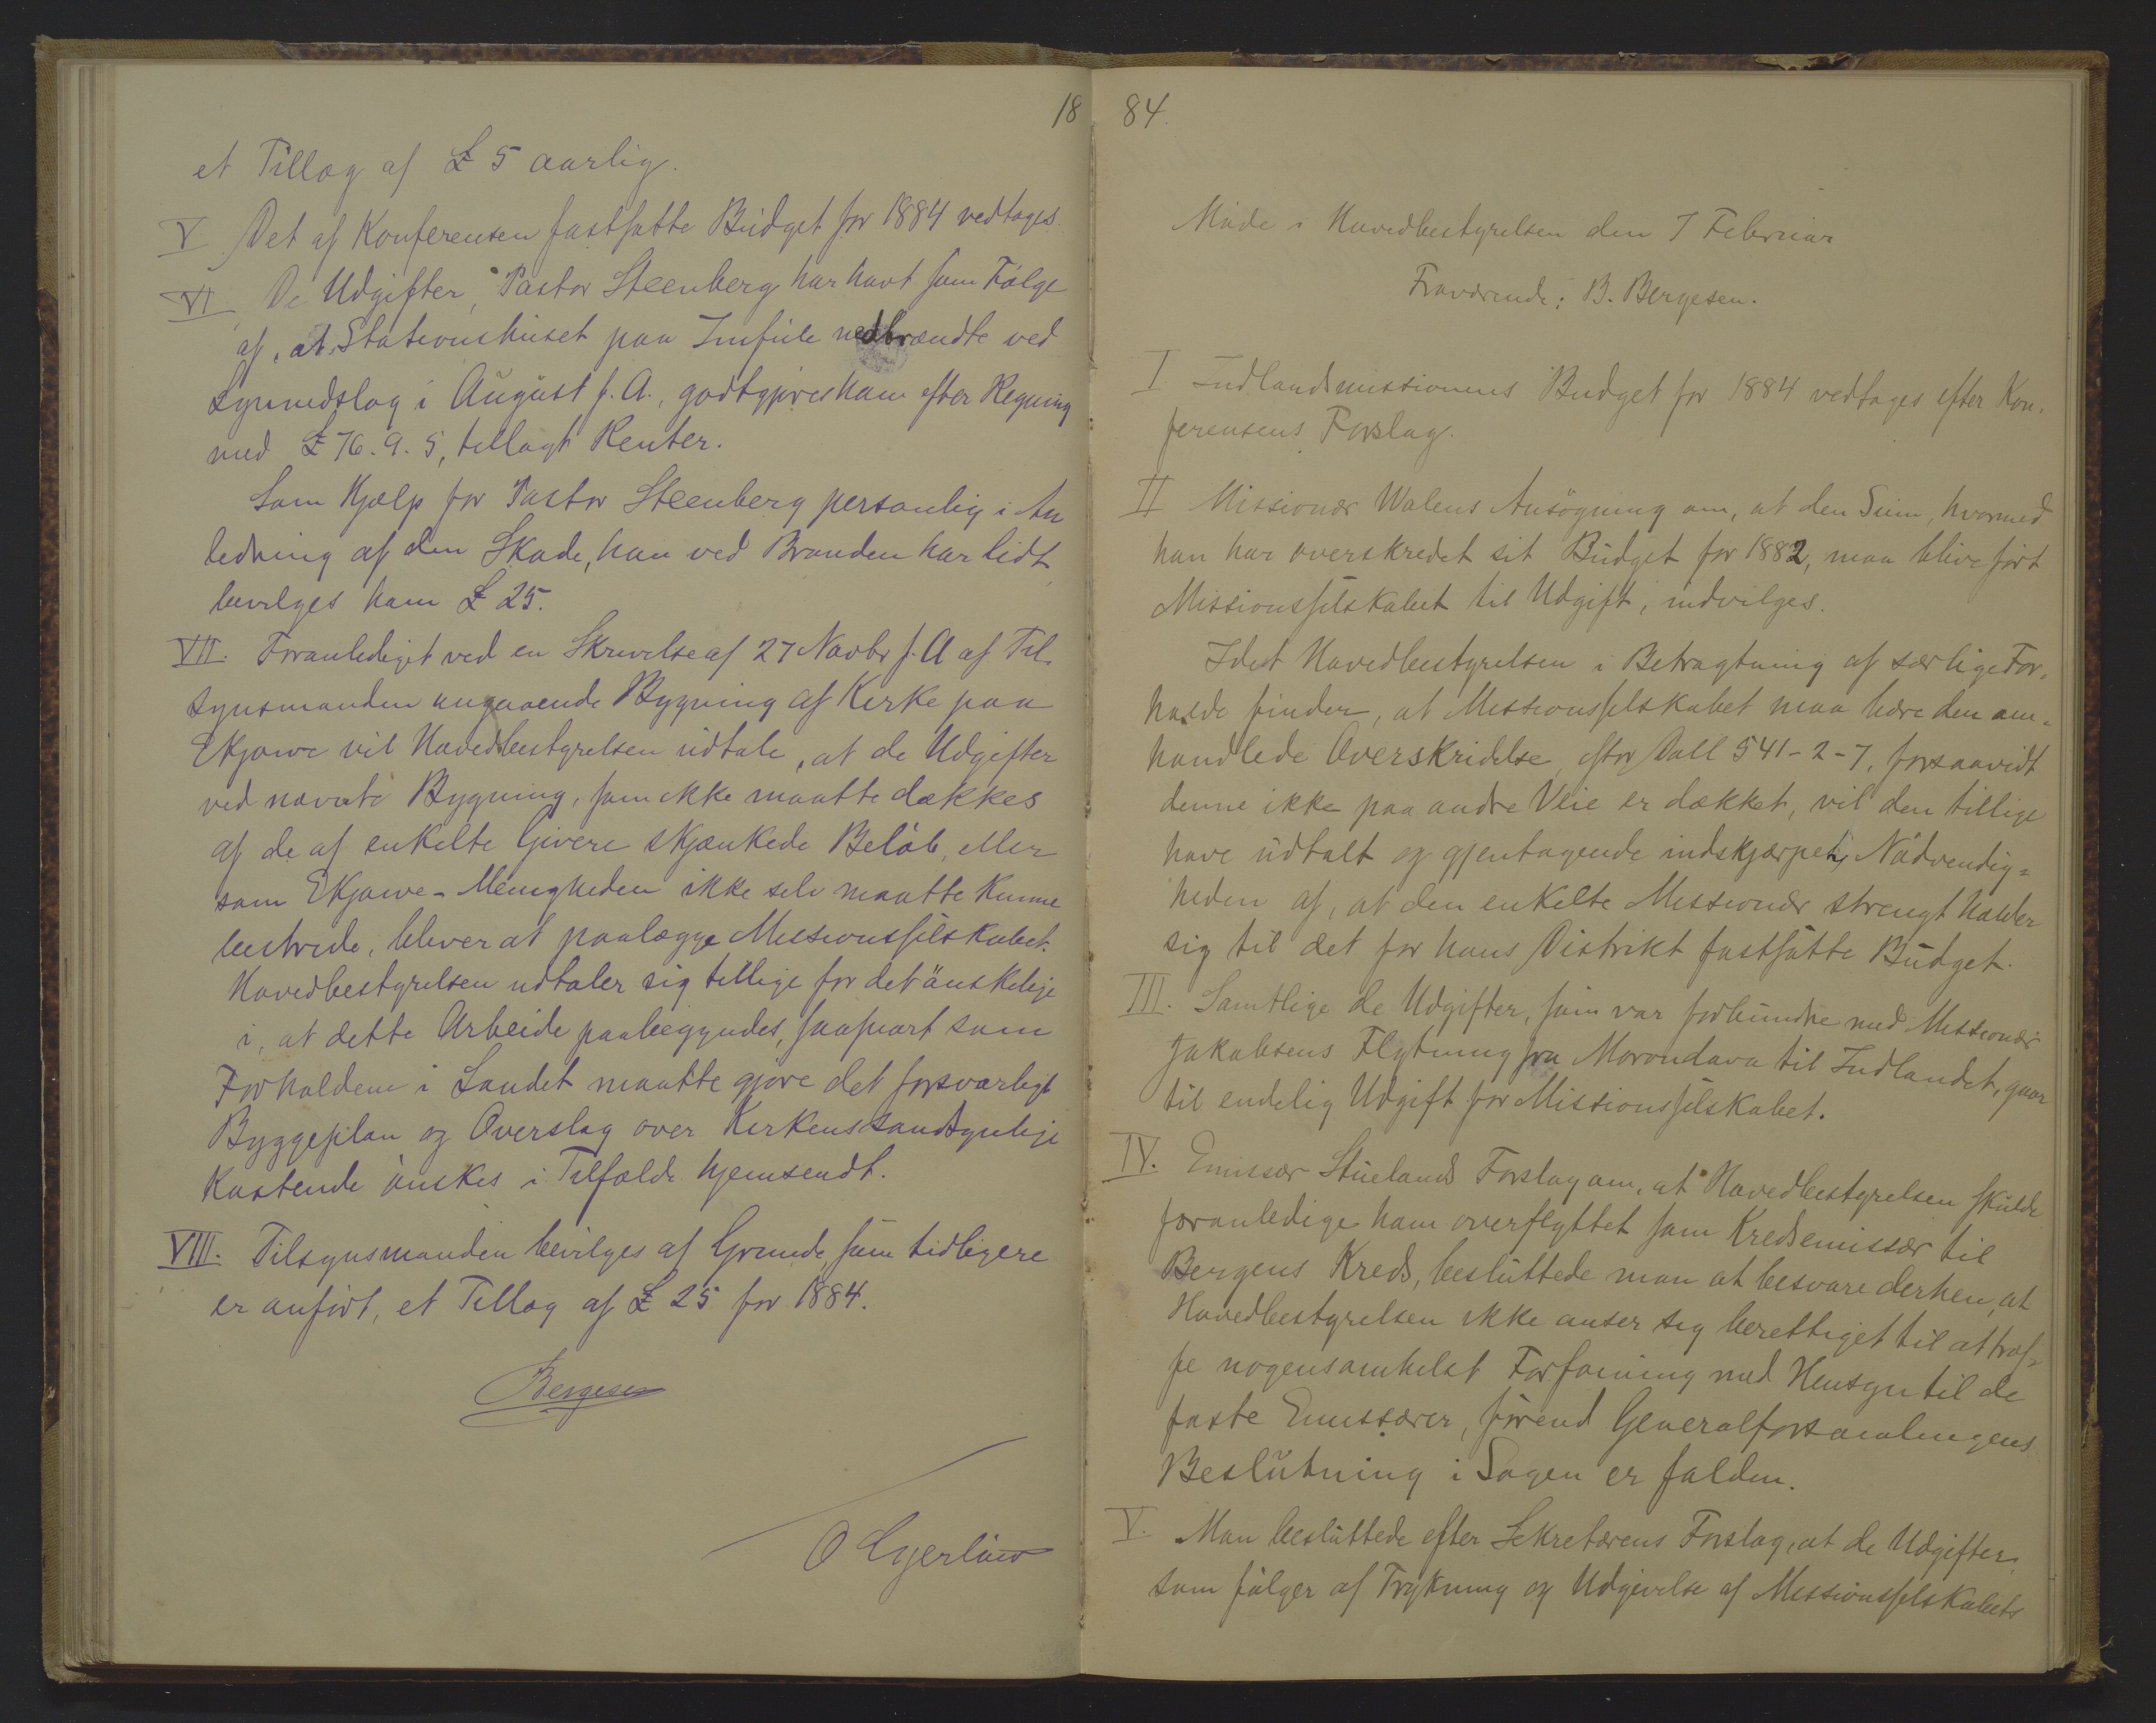 18
et Tillæg af £ 5 aarlig.
V Det af Konferensen fastsatte Budget for 1884 vedtages.
VI De Udgifter, Pastor Steenberg har havt som Følge
af, at Stationshuset paa Imfule nedbrændte ved
Lynnedslag i August f. A., godtgjøres ham efter Regning
med £ 76. 9. 5, tillagt Renter.
Som Hjælp for Pastor Steenberg personlig i An
ledning af den Skade, han ved Branden har lidt
bevilges ham £ 25.
VII. Foranlediget ved en Skrivelse af 27 Novbr f. A af Til-
synsmanden angaaende Bygning af Kirke paa
Ekjowe vil Hovedbestyrelsen udtale, at de Udgifter
ved nævnte Bygning, som ikke maatte dækkes
af de af enkelte Givere skjænkede Beløb, eller
som Ekjowe-Menigheden ikke selv maatte kunne
bestride, bliver at paalægge Missionsselskabet.
Hovedbestyrelsen udtaler sig tillige for det ønskelige
i, at dette Arbeide paabegyndes, saasnart som
Forholdene i Landet maatte gjøre det forsvarligt
Byggeplan og Overslag over Kirkens sandsynlige
Kostende ønskes i Tilfælde hjemsendt.
VIII. Tilsynsmanden bevilges af Grunde, som tidligere
er anført, et Tillæg af £ 25 for 1884.
Bergesen
O Gjerløw
84.
Møde i Hovedbestyrelsen den 7 Februar
Fraværende: B. Bergesen.
I Indlandsmissionens Budget for 1884 vedtages efter Kon-
ferensens Forslag.
II Missionær Walens Ansøgning om, at den Sum, hvormed
han har overskredet sit Budget for 1882, maa blive ført
Missionsselskabet til Udgift, indvilges.
Idet Hovedbestyrelsen i Betragtning af særlige For-
holde finder, at Missionsselskabet maa bære den om-
handlede Overskridelse, stor Doll 541-2-7, forsaavidt
denne ikke paa andre Veie er dækket, vil den tillige
have udtalt og gjentagende indskjærpet, Nødvendig=
heden af, at den enkelte Missionær strengt holder
sig til det for hans Distrikt fastsatte Budget.
III. Samtlige de Udgifter, som var forbundne med Missionær
Jakobsens Flytning fra Morondava til Indlandet, gaar
til endelig Udgift for Missionsselskabet.
IV. Emissær Stuelands Forslag om, at Hovedbestyrelsen skulde
foranledige ham overflyttet som Kredsemissær til
Bergens Kreds, besluttede man at besvare derhen, at
Hovedbestyrelsen ikke anser sig berettiget til at træf=
fe nogensomhelst Forføining med Hensyn til de
faste Emissærer, førend Generalforsamlingens
Beslutning i Sagen er falden.
V. Man besluttede efter Sekretærens Forslag, at de Udgifter,
som følger af Trykning og Udgivelse af Missionsselskabets